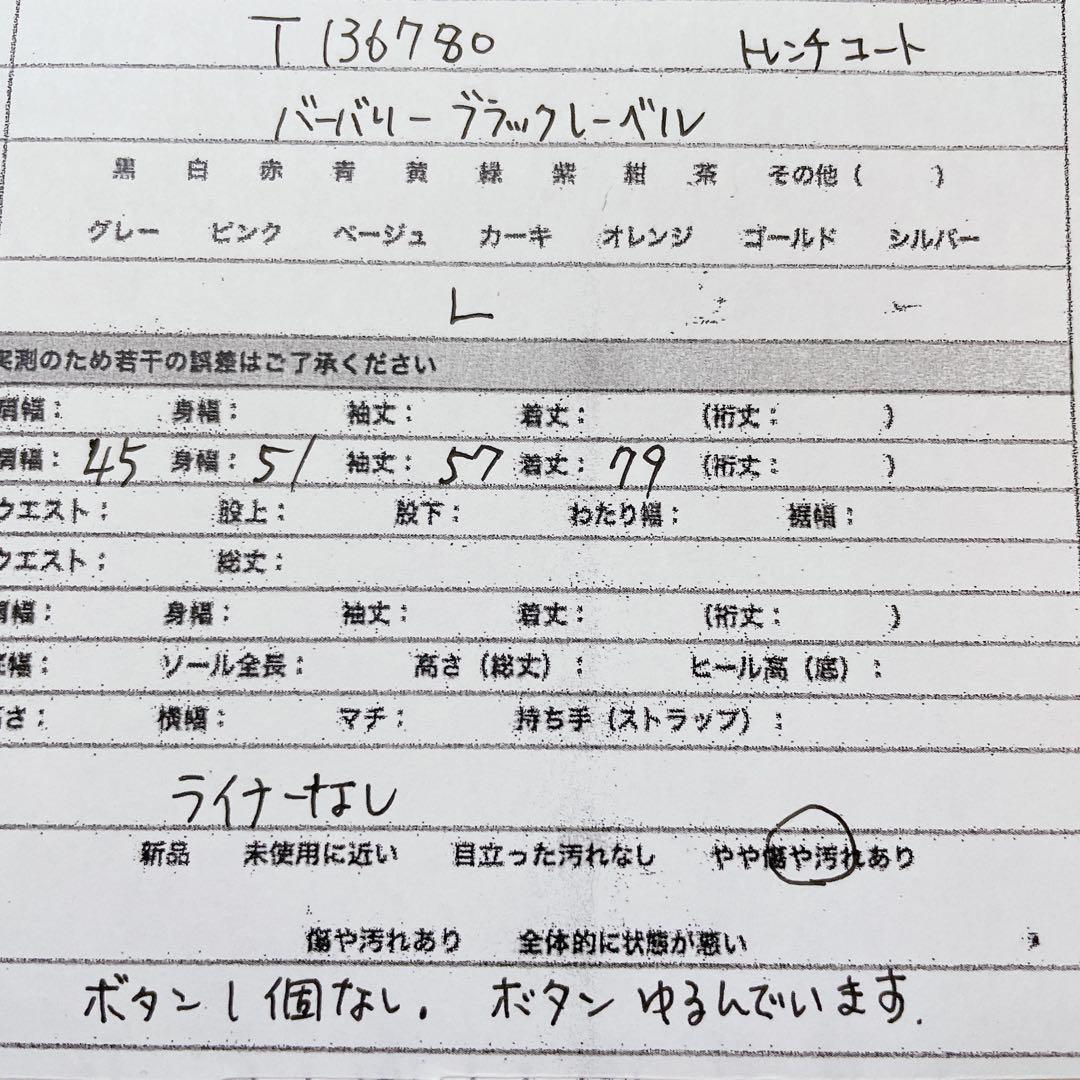 T136780 トレンチコート
バーバリーブラックレーベル
黒 白 赤 青 黄 緑 紫 紺 茶 その他( )
グレー ピンク ベージュ カーキ オレンジ ゴールド シルバー
L
実測のため若干の誤差はご了承ください
肩幅: 身幅: 袖丈: 着丈: (裄丈: )
肩幅: 45 身幅: 51 袖丈: 57 着丈: 79 (裄丈: )
ウエスト: 股上: 股下: わたり幅: 裾幅:
ウエスト: 総丈:
肩幅: 身幅: 袖丈: 着丈: (裄丈: )
幅: ソール全長: 高さ(総丈): ヒール高(底):
高さ: 横幅: マチ: 持ち手(ストラップ):
ライナーなし
新品 未使用に近い 目立った汚れなし やや傷や汚れあり
傷や汚れあり 全体的に状態が悪い
ボタン1個なし. ボタンゆるんでいます.